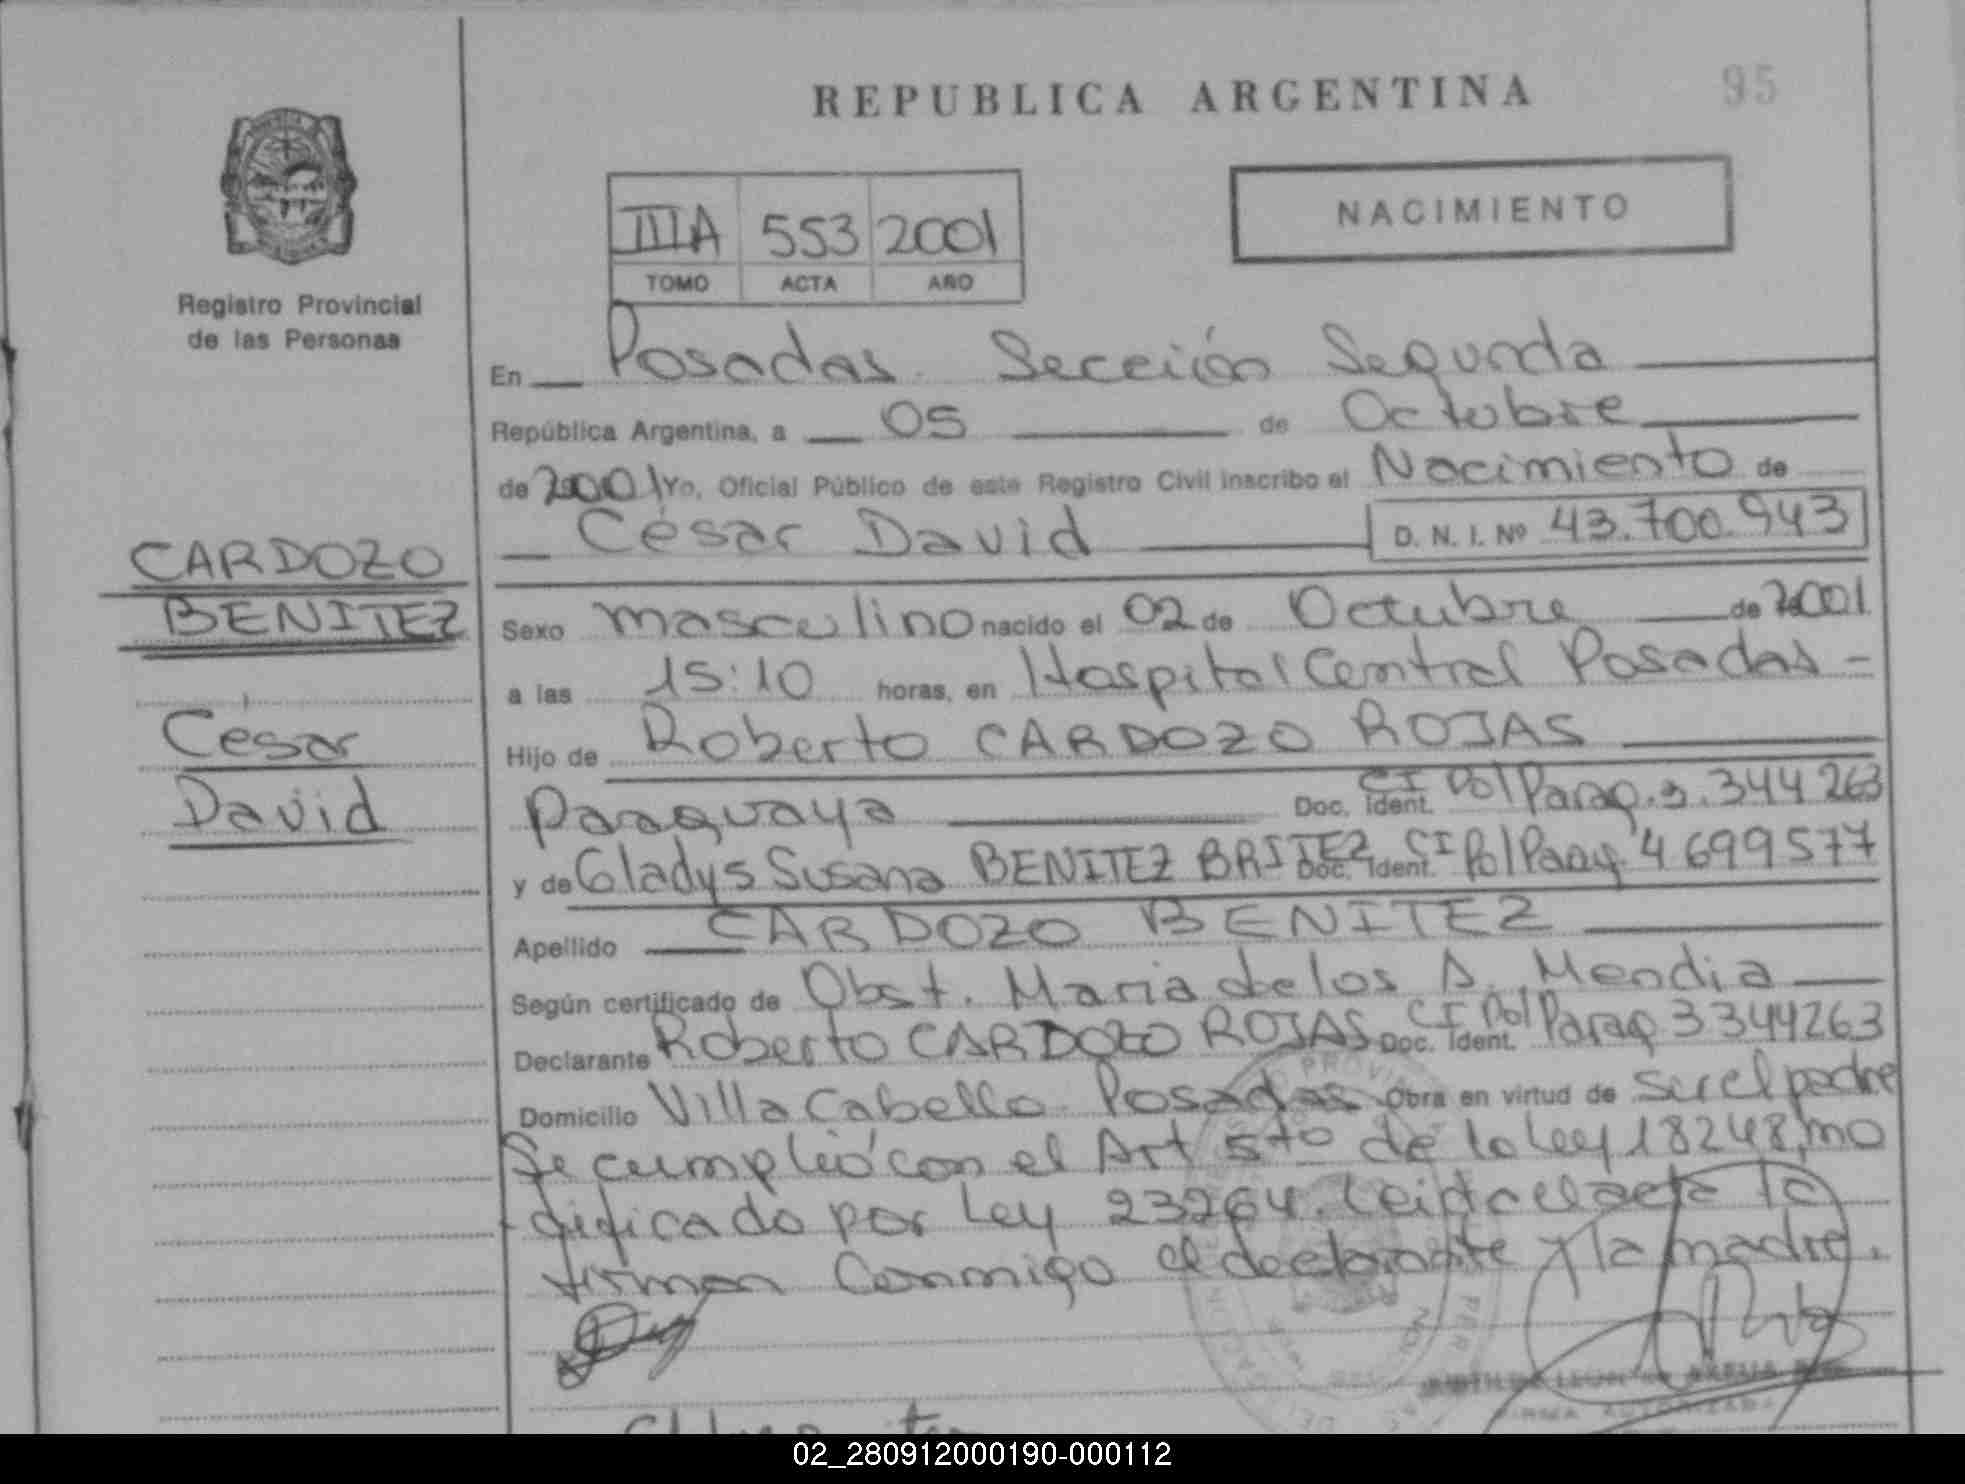 REPUBLICA ARGENTINA
95
NACIMIENTO
IIIA 553 2001
TOMO ACTA AÑO
Registro Provincial
de las Personas
En Posadas Sección Segunda
República Argentina, a 05 de Octubre
de 2001 Yo, Oficial Público de este Registro Civil inscribo el Nacimiento de
César David D. N. I. Nº 43.700.943
CARDOZO
BENITEZ
César
David
Sexo masculino nacido el 02 de Octubre de 2001
a las 15:10 horas, en Hospital Central Posadas -
Hijo de Roberto CARDOZO ROJAS
Paraguaya Doc. Ident. CI Pol Parag. 3.344 263
y de Gladys Susana BENITEZ BRITEZ Doc. Ident. CI Pol Paray 4 699577
Apellido CARDOZO BENITEZ
Según certificado de Obst. Maria de los A. Mendia
Declarante Roberto CARDOZO ROJAS Doc. Ident. CI Pol Parag 3344263
Domicilio Villa Cabello Posadas Obra en virtud de ser el padre
Se cumplió con el Art 5to de la Ley 18248, mo
dificado por Ley 23264. Leida el acta la
firman Conmigo el declarante y la madre.
FIRMA AUTORIZADA
02_280912000190-000112